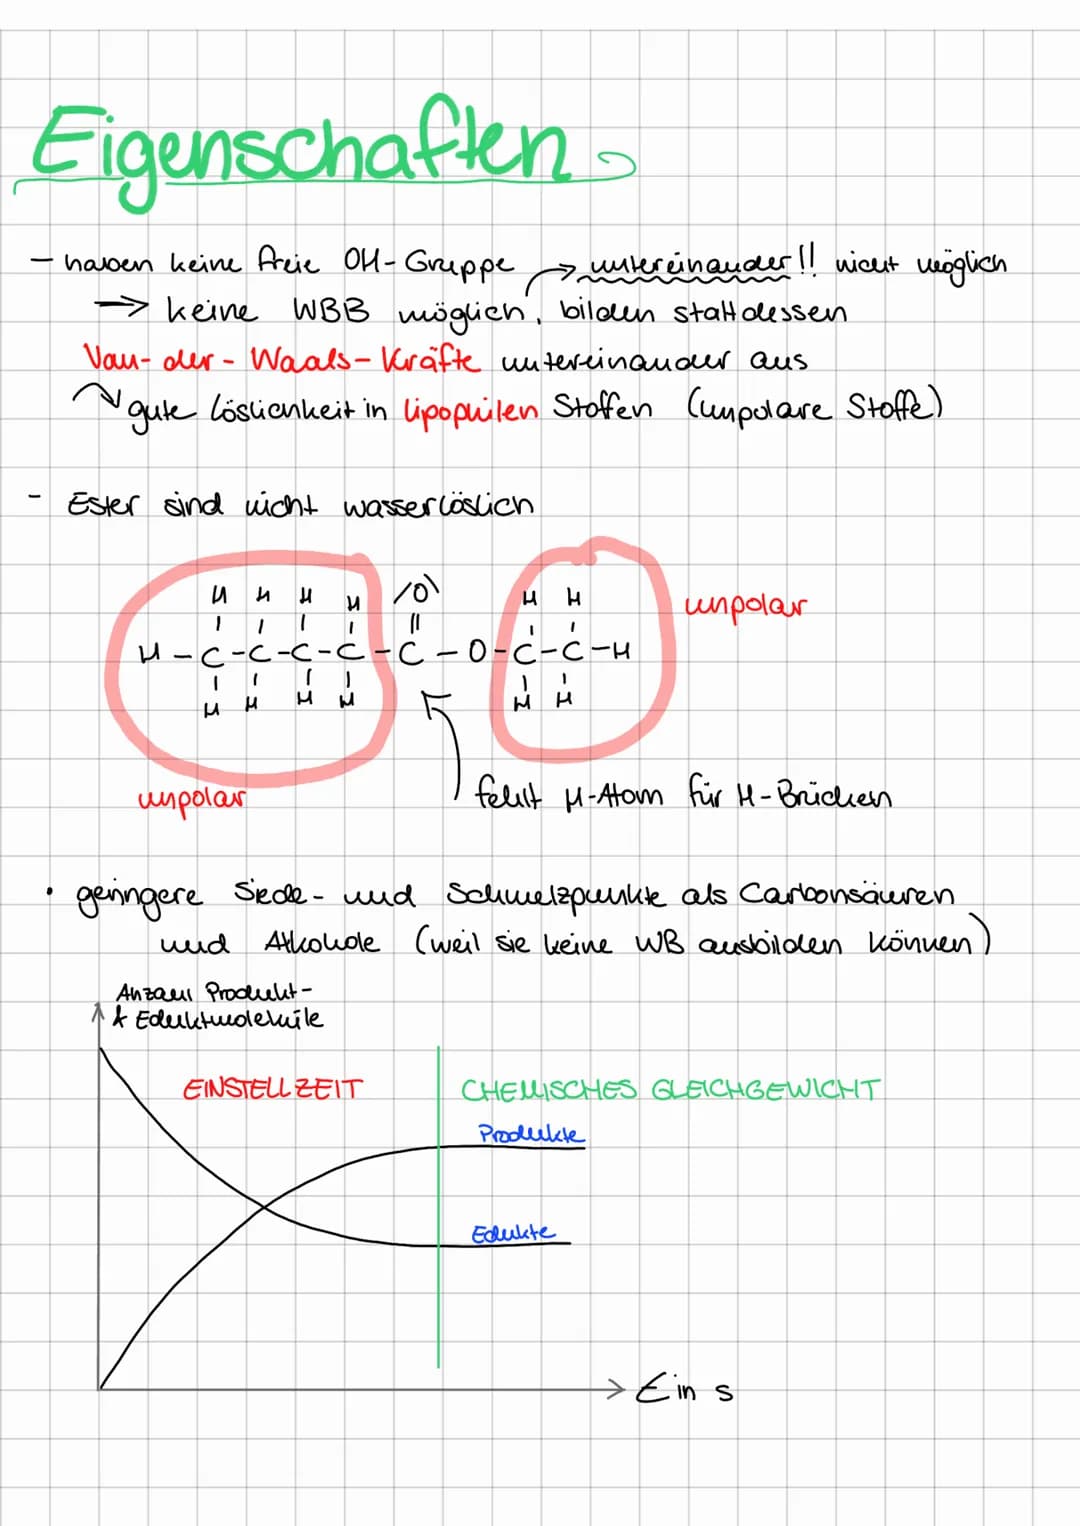 Eigenschaften
- haben keine freie OH-Gruppe → untereinander!! nicht möglich
→ keine WBB möglich, bilden stattdessen
Van-der-Waals-Kräfte untereinander aus
gute Löslichkeit in lipophilen Stoffen (unpolare Stoffe)
- Ester sind nicht wasserlöslich
H H H H /O\ H H
| | | | || | |
H-C-C-C-C-C-O-C-C-H
| | | | | |
H H H H H H
unpolar
unpolar
fehlt H-Atom für H-Brücken
• geringere Siede- und Schmelzpunkte als Carbonsäuren
und Alkohole (weil sie keine WB ausbilden können)
Anzahl Produkt-
& Eduktmoleküle
EINSTELLZEIT CHEMISCHES GLEICHGEWICHT
Produkte
Edukte
t in s